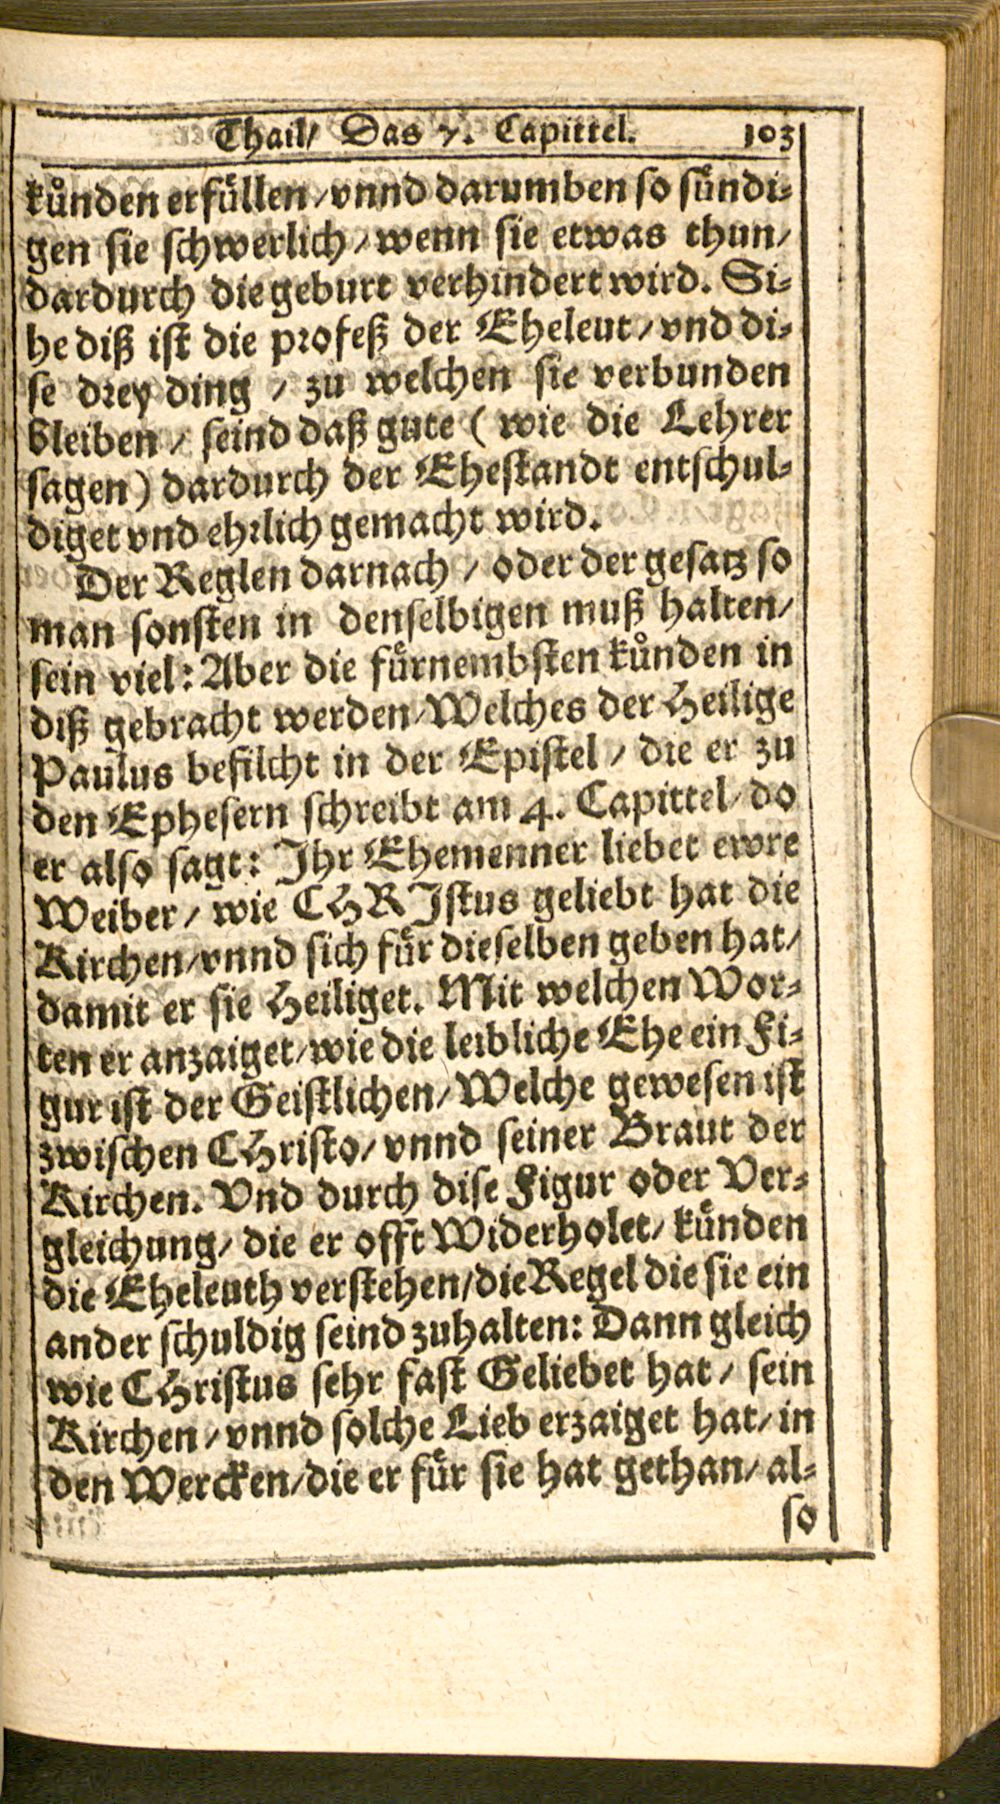 Thail/ Das 7. Capittel. 103
kůnden erfüllen/vnnd darumben so sündi-
gen sie schwerlich/wenn sie etwas thun/
dardurch die geburt verhindert wird. Si-
he diß ist die profeß der Eheleut/vnd di-
se drey ding / zu welchen sie verbunden
bleiben / seind daß gute ( wie die Lehrer
sagen) dardurch der Ehestandt entschul-
diget vnd ehrlich gemacht wird.
Der Reglen darnach / oder der gesatz so
man sonsten in denselbigen muß halten/
sein viel: Aber die fürnembsten kůnden in
diß gebracht werden/Welches der Heilige
Paulus befilcht in der Epistel / die er zu
den Ephesern schreibt am 4. Capittel/do
er also sagt: Ihr Ehemenner liebet ewre
Weiber/ wie CHRIstus geliebt hat die
Kirchen/vnnd sich für dieselben geben hat/
damit er sie Heiliget. Mit welchen Wor-
ten er anzaiget/wie die leibliche Ehe ein Fi-
gur ist der Geistlichen/Welche gewesen ist
zwischen CHristo/vnnd seiner Braut der
Kirchen. Vnd durch dise Figur oder Ver-
gleichung/ die er offt Widerholet/ künden
die Eheleuth verstehen/die Regel die sie ein
ander schuldig seind zuhalten: Dann gleich
wie CHristus sehr fast Geliebet hat / sein
Kirchen/vnnd solche Lieb erzaiget hat/in
den Wercken/die er für sie hat gethan/al-
so